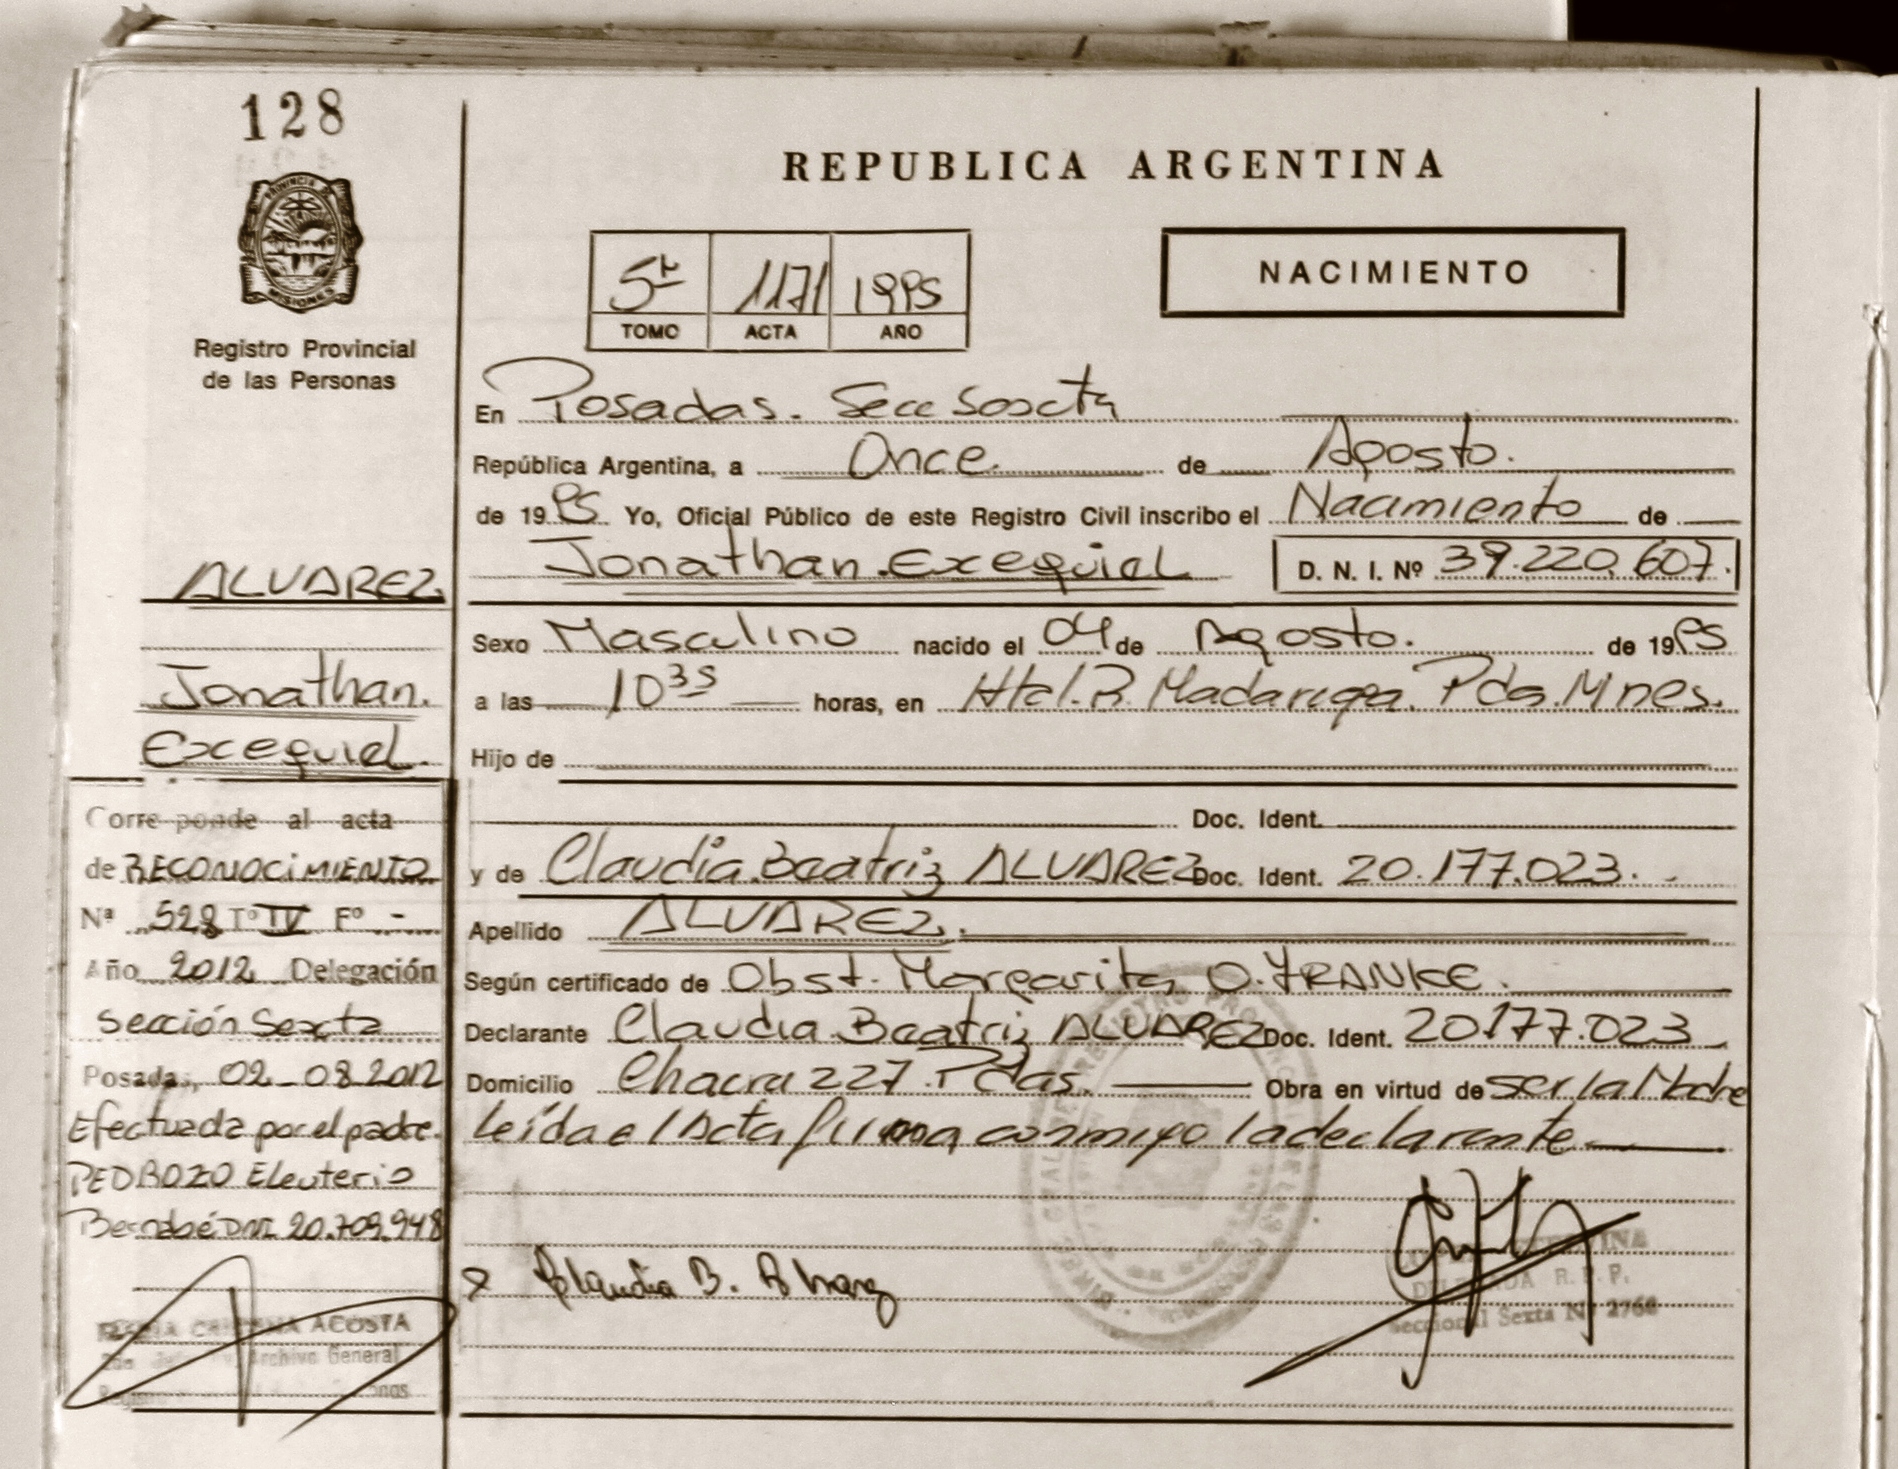 128
PROVINCIA DE
MISIONES
Registro Provincial
de las Personas
ALVAREZ
Jonathan.
Exequiel.
Corresponde al acta
de RECONOCIMIENTO
Nª 528 Tº IV Fº -
Año 2012 Delegación
Sección Sexta
Posadas, 02-08 2012
Efectuada por el padre.
PEDROZO Eleuterio
Bernabé DNI. 20.709.948
MARIA CRISTINA ACOSTA
Archivo General
REPUBLICA ARGENTINA
5º 1171 1995
TOMO ACTA AÑO
NACIMIENTO
En Posadas. Secc Sexta
República Argentina, a Once. de Agosto.
de 1995 Yo, Oficial Público de este Registro Civil inscribo el Nacimiento de
Jonathan Exequiel D. N. I. Nº 39.220.607.
Sexo Masculino nacido el 04 de Agosto. de 1995
a las 10 35 horas, en Htal. R. Madariaga. Pdas. Mnes.
Hijo de
Doc. Ident.
y de Claudia Beatriz ALVAREZ Doc. Ident. 20.177.023.
Apellido ALVAREZ.
Según certificado de Obst. Margarita O. FRANKE.
Declarante Claudia Beatriz ALVAREZ Doc. Ident. 20177.023
Domicilio Chacra 227. Pdas. Obra en virtud de ser la Madre
Leída el Acta firma conmigo la declarante
x Claudia B. Alvarez
DELEGADA R. P. P.
Seccional Sexta Nº 2768